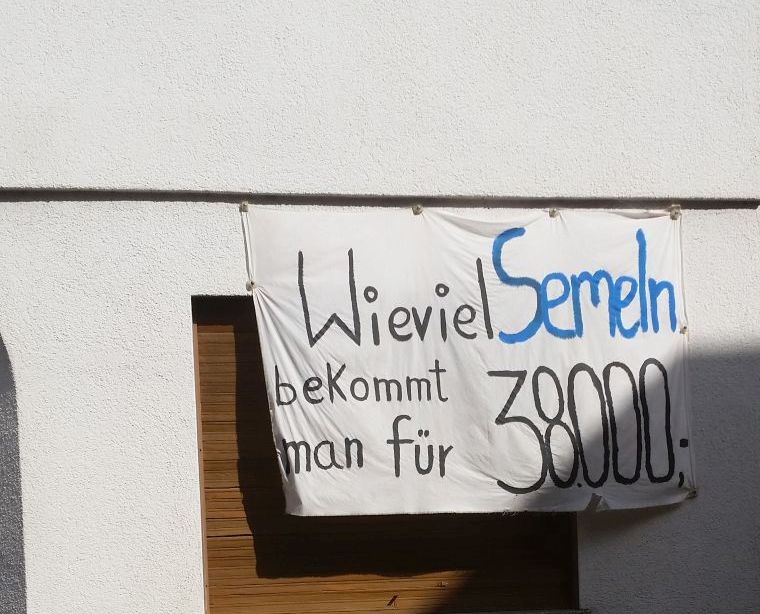 Wieviel Semeln
bekommt
man für 38.000;